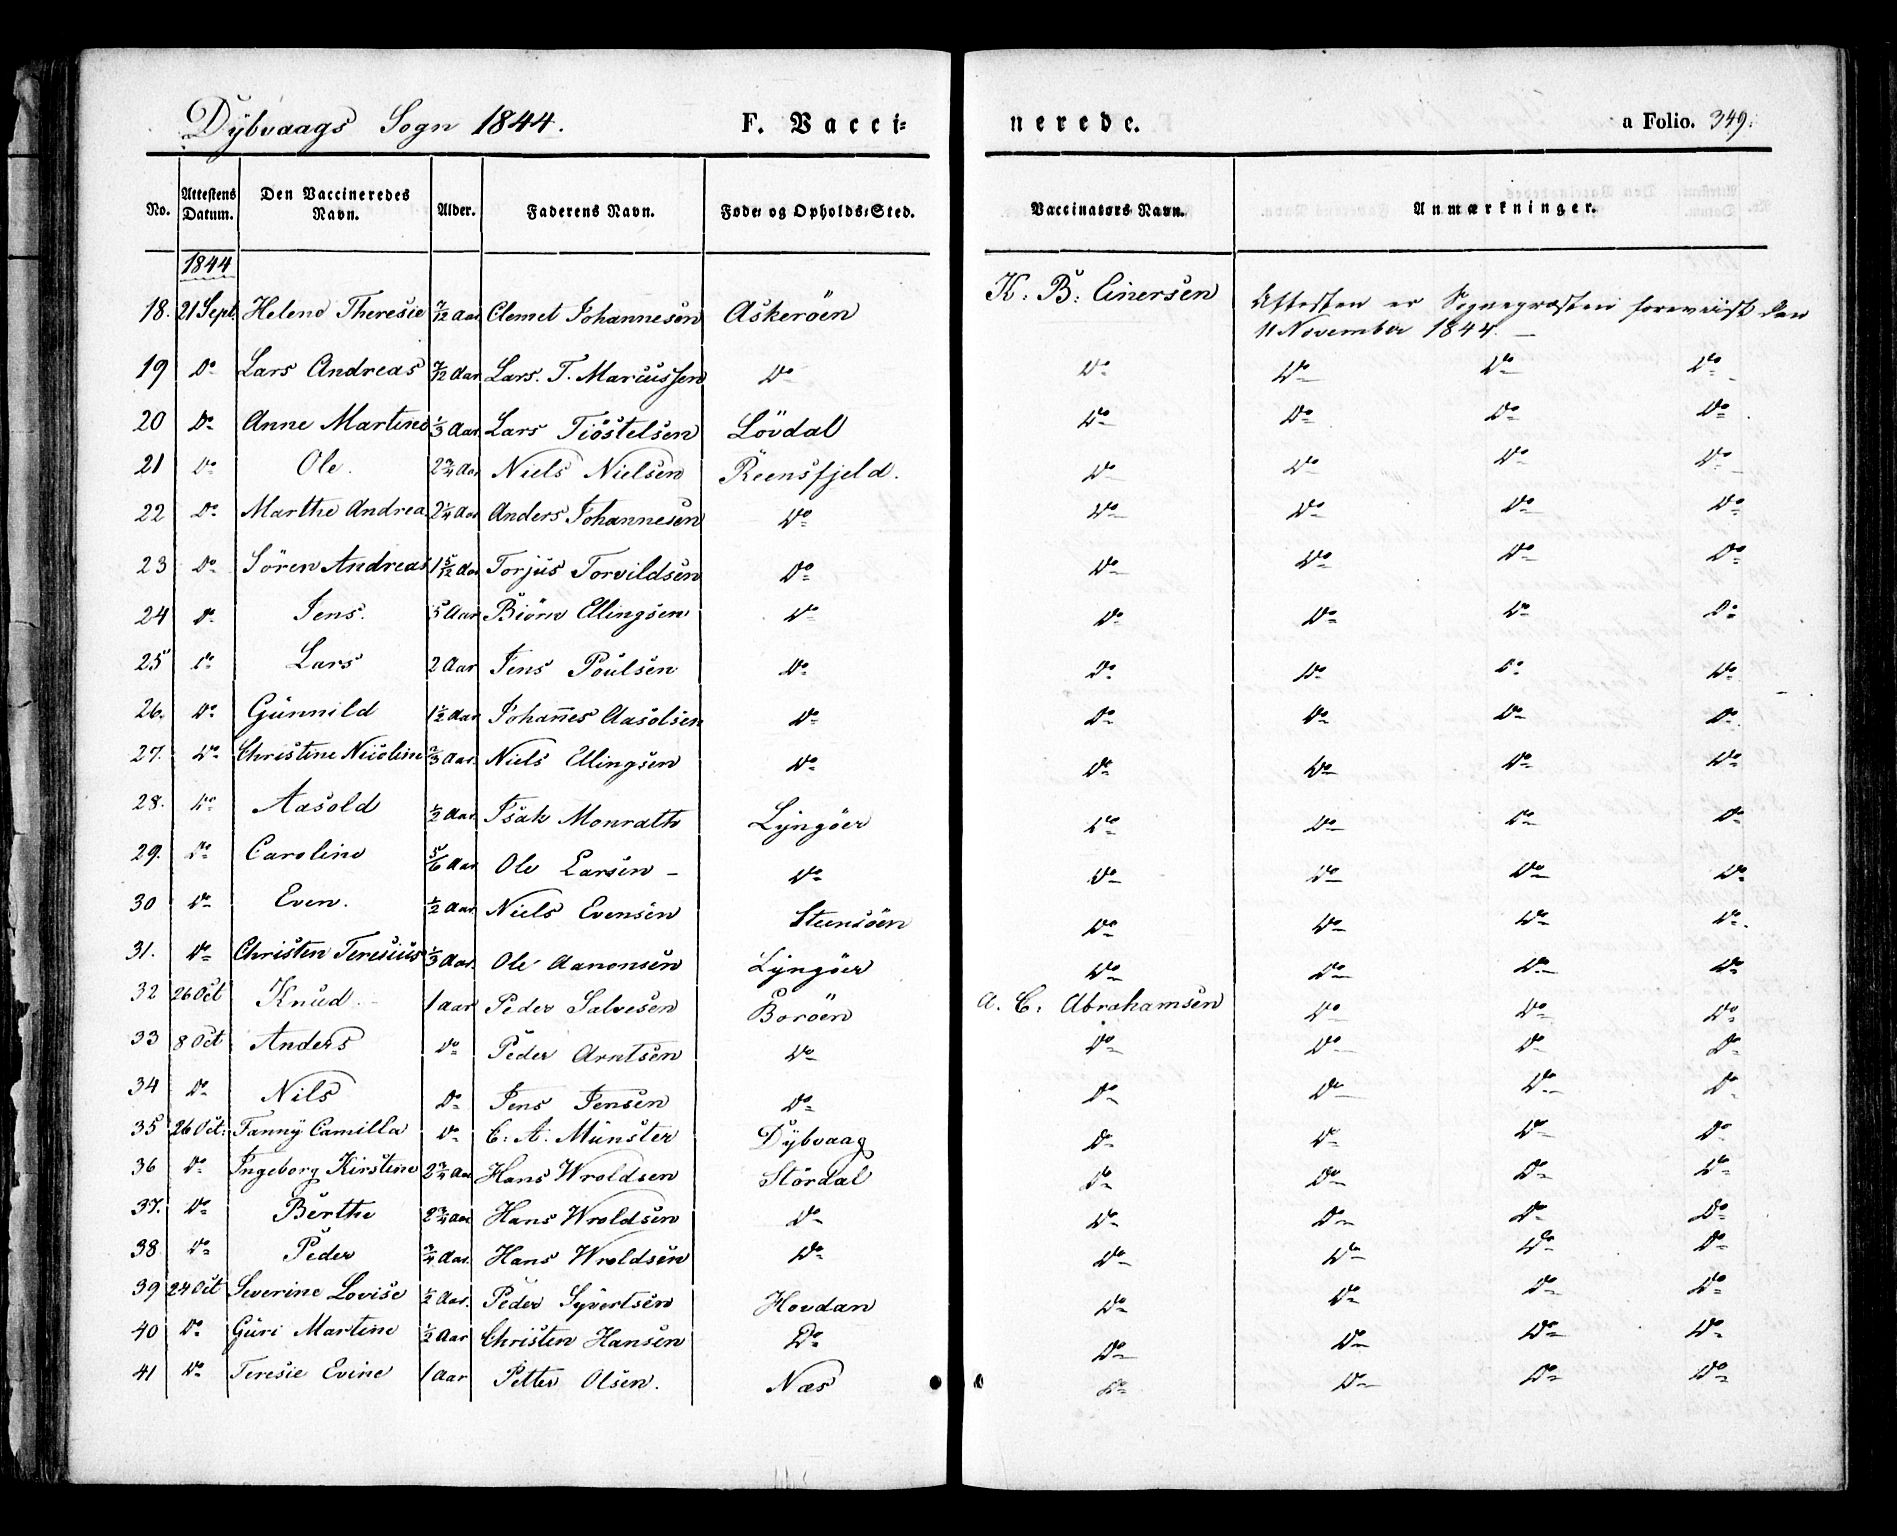 Dybvaags Sogn 1844. F. Vacci-
nerede. a Folio. 349.
No. Attestens Datum. Den Vaccineredes Navn. Alder. Faderens Navn. Føde- og Opholds-Sted. Vaccinators Navn. Anmærkninger.
1844
18. 21 Sept. Helene Theresie 7/12 Aar Clemet Johannesen Askeröen K. B. Einersen Attesten er Sognepræsten foreviist den
11 November 1844. —
19 Do Lars Andreas 7/12 Aar Lars. T. Marcussen Do Do Do Do Do
20 Do Anne Martine 1/3 Aar Lars Tiöstelsen Lövdal Do Do Do Do
21 Do Ole. 2 3/4 Aar Niels Nielsen Reensfjeld. Do Do Do Do
22 Do Marthe Andrea 2 1/4 Aar Anders Johannesen Do Do Do Do Do
23 Do Sören Andreas 1 5/12 Aar Torjus Torvildsen Do Do Do Do Do
24 Do Jens. 5 Aar Biörn Ellingsen Do Do Do Do Do
25 Do Lars 2 Aar Jens Poulsen Do Do Do Do Do
26. Do Gunnild 1 1/2 Aar Johannes Aasolsen Do Do Do Do Do
27. Do Christine Nicoline 2/3 Aar. Niels Ellingsen Do Do Do Do Do
28. Do Aasold 1/2 Aar. Isak Monrath Lyngöer Do Do Do Do
29. Do Caroline 5/6 Aar Ole Larsen — Do Do Do Do Do
30 Do Even. 1/2 Aar Niels Evensen Steensöen Do Do Do Do
31. Do Christen Teresius 1/3 Aar. Ole Aanonsen Lyngöer Do Do Do Do
32 26 Oct Knud. 1 Aar Peder Salvesen Boröen A. C. Abrahamsen Do Do Do
33 8 Oct Anders Do Peder Arntsen Do Do Do Do Do
34 Do Nils Do Jens Jensen Do Do Do Do Do
35 26 Oct. Fanny Camilla Do C. A. Münster Dybvaag Do Do Do Do
36 Do Ingeborg Kirstine 2 3/4 Aar Hans Wroldsen Stördal Do Do Do Do
37. Do Berthe 2 3/4 Aar Hans Wroldsen Do Do Do Do Do
38 Do Peder 3/4 Aar. Hans Wroldsen Do Do Do Do Do
39 24 Oct Severine Lovise 1/2 Aar. Peder Syvertsen Hovdan Do Do Do Do
40 Do Guri Martine 1/2 Aar Christen Hansen Do Do Do Do Do
41 Do Teresie Evine 1 Aar Petter Olsen. Næs Do Do Do Do